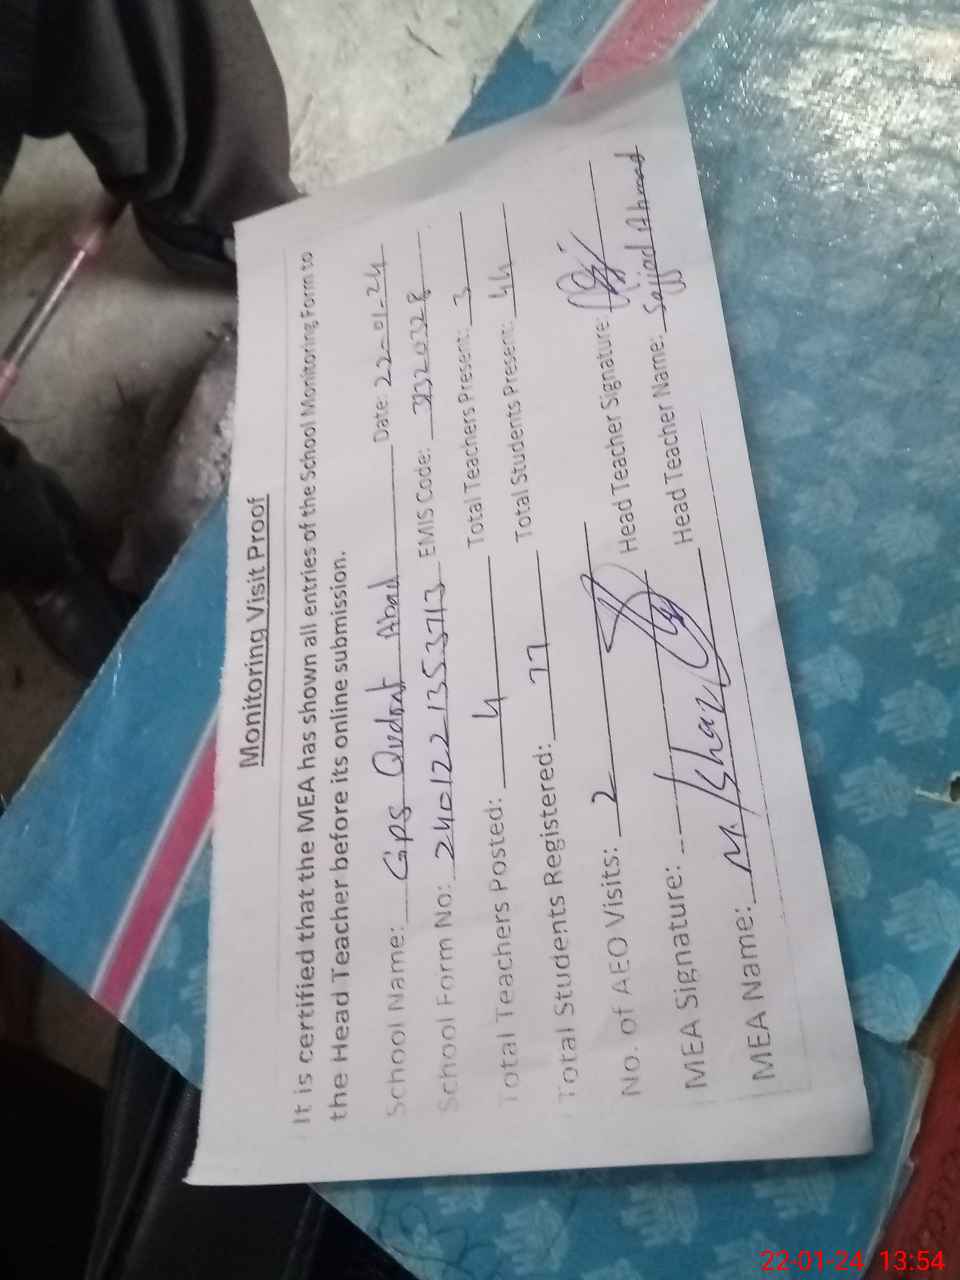 Monitoring Visit Proof
It is certified that the MEA has shown all entries of the School Monitoring Form to
the Head Teacher before its online submission.
School Name: GPS Qudrat Abad Date: 22-01-24
School Form No: 2401221353713 EMIS Code:
Total Teachers Posted: 4 Total Teachers Present: 3
Total Students Registered: 77 Total Students Present: 44
No. of AEO Visits: 2
MEA Signature: Head Teacher Signature:
MEA Name: M. Head Teacher Name: Sajjad Ahmad
22-01-24 13:54